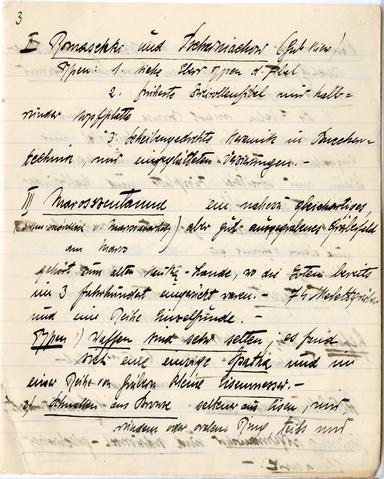 3
II Romaschki und Tscherniachow (Gub. Kiew)
Typen: 1. siehe über Typen d. Fibel
2. früheste Dreirollenfibel mit halb=
runder Kopfplatte
3. Scheibengedrehte Keramik in Drechsler-
technik mit eingeglätteten Verzierungen. –
III Marosszentanna ein nahezu gleichartiges,
aber gut ausgegrabenes Gräberfeld
am Maros
gehört zum alten Lande, wo die Goten bereits
im 3 Jahrhundert eingerückt waren. – 74 Skelettgräber
und eine Reihe Einzelfunde. –
Typen 1) Waffen sind sehr selten, es fand
sich eine einzige Spatha und in
einer Reihe von Gräbern kleine Eisenmesser. –
2) Schnallen aus Bronze seltener aus Eisen, mit
rundem oder ovalem Ring, teils mit